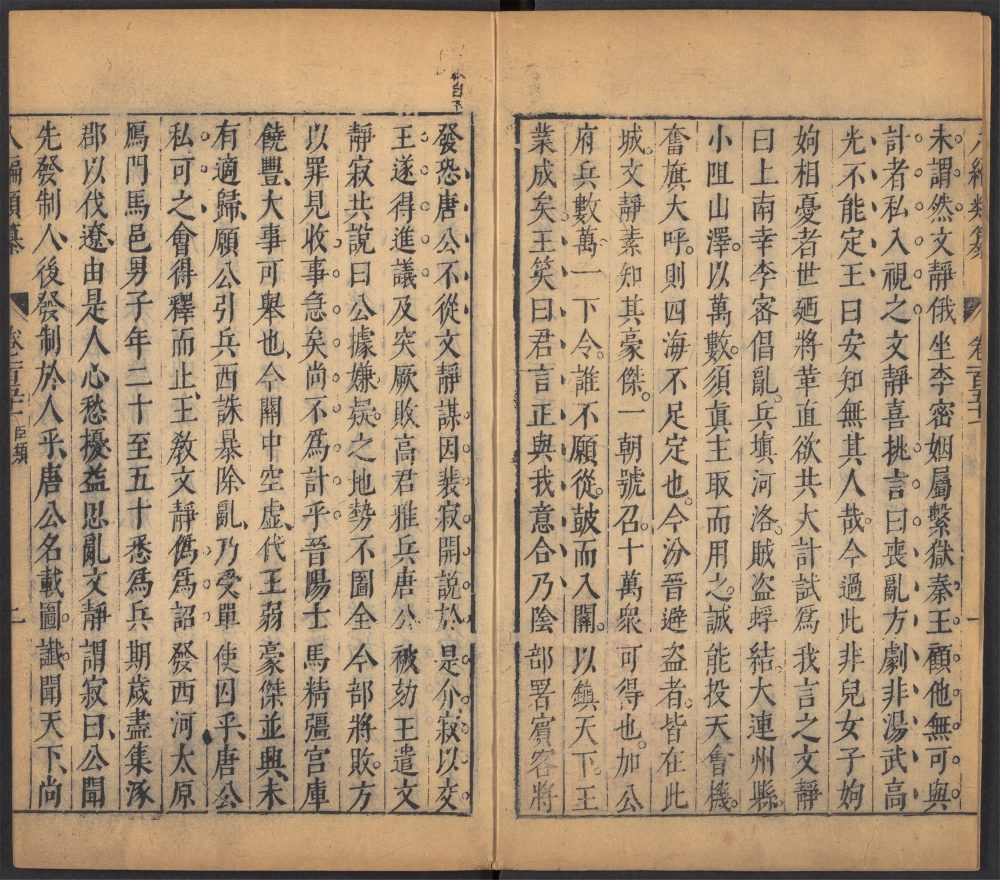 八編類纂 卷二百五十一
未謂然文靜俄坐李密姻屬繫獄秦王顧他無可與
計者私入視之文靜喜挑言曰喪亂方劇非湯武高
光不能定王曰安知無其人哉今過此非兒女子姁
姁相憂者世廼將革直欲共大計試爲我言之文靜
曰上南幸李密倡亂兵塡河洛賊盜蜉結大連州縣
小阻山澤以萬數須眞主取而用之誠能投天會機
奮旗大呼則四海不足定也今汾晉避盜者皆在此
城文靜素知其豪傑一朝號召十萬衆可得也加公
府兵數萬一下令誰不願從鼓而入關以鎭天下王
業成矣王笑曰君言正與我意合乃陰部署賓客將
發恐唐公不從文靜謀因裴寂開説於是介寂以交
王遂得進議及突厥敗高君雅兵唐公被劾王遣文
靜寂共說曰公據嫌疑之地勢不圖全今部將敗方
以罪見收事急矣尚不爲計乎晉陽士馬精彊宮庫
饒豐大事可舉也今關中空虛代王弱豪傑並興未
有適歸願公引兵西誅暴除亂乃受單使囚乎唐公
私可之會得釋而止王敎文靜僞爲詔發西河太原
鴈門馬邑男子年二十至五十悉爲兵期歲盡集涿
郡以伐遼由是人心愁擾益思亂文靜謂寂曰公聞
先發制人後發制於人乎唐公名載圖讖聞天下尚
八編類纂 卷二百五十一 臣類